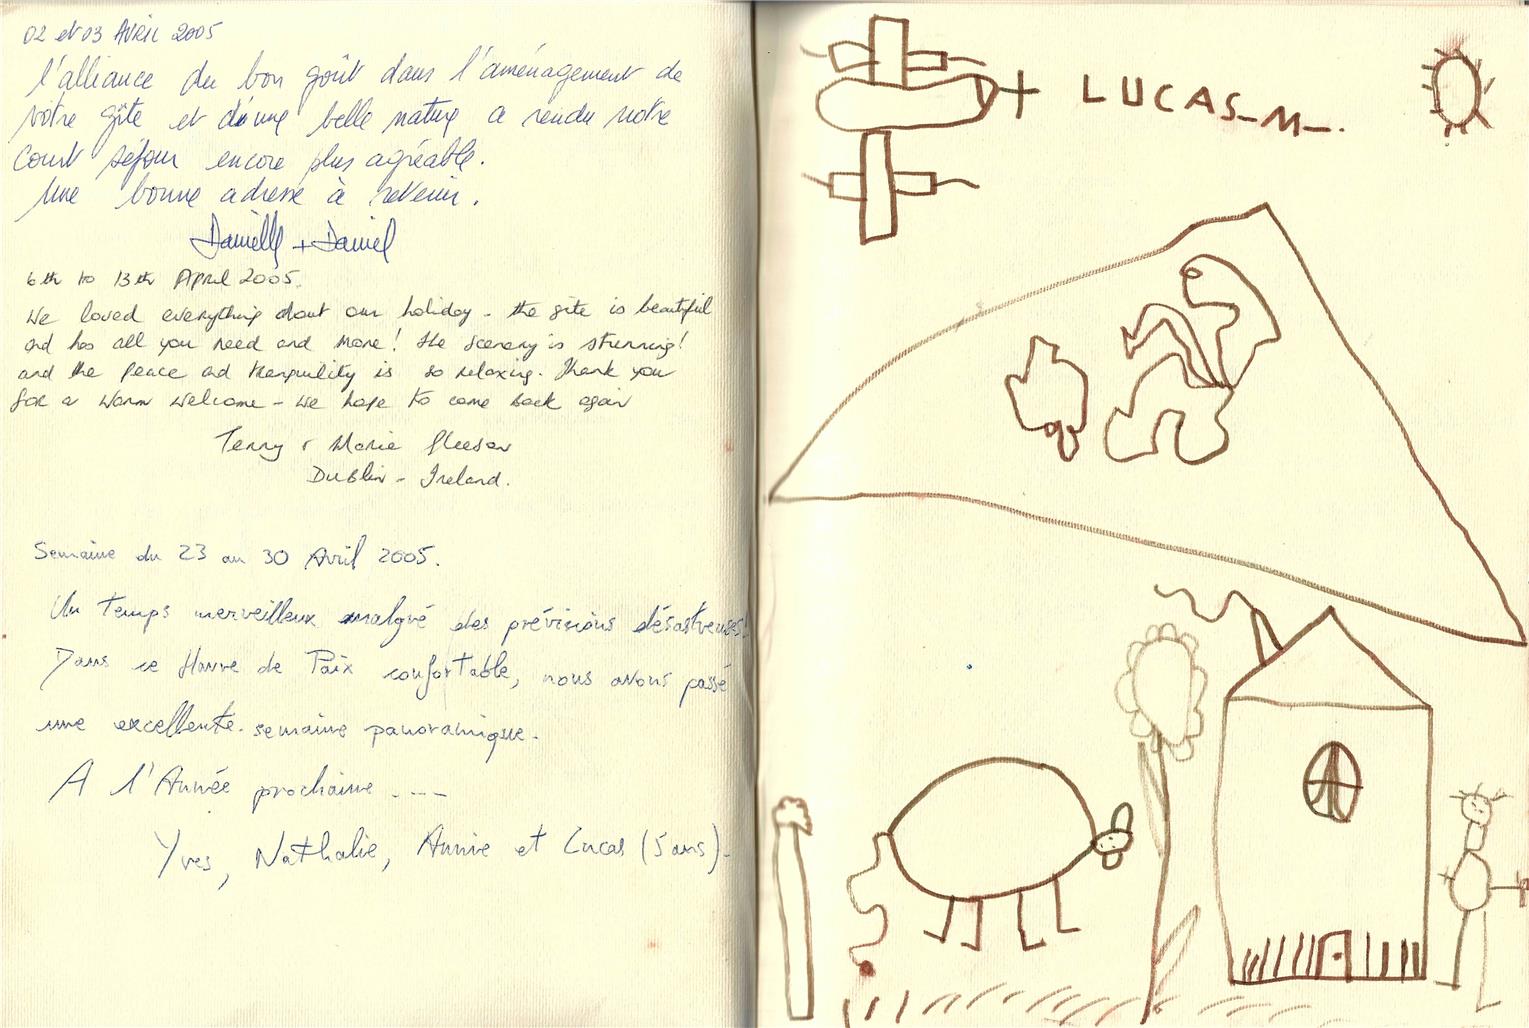 02 et 03 Avril 2005
l'alliance du bon goût dans l'aménagement de
votre gîte et d'une belle nature a rendu notre
court séjour encore plus agréable.
Une bonne adresse à retenir.
Danielle + Daniel
6th to 13th April 2005.
We loved everything about our holiday - the gite is beautiful
and has all you need and more! The scenery is stunning!
and the peace and tranquility is so relaxing. Thank you
for a warm welcome - we hope to come back again
Terry & Marie Gleeson
Dublin - Ireland.
Semaine du 23 au 30 Avril 2005.
Un temps merveilleux malgré des prévisions désastreuses!
Dans ce Havre de Paix confortable, nous avons passé
une excellente semaine panoramique.
A l'Année prochaine ----
Yves, Nathalie, Annie et Lucas (5 ans).
LUCAS-M-.